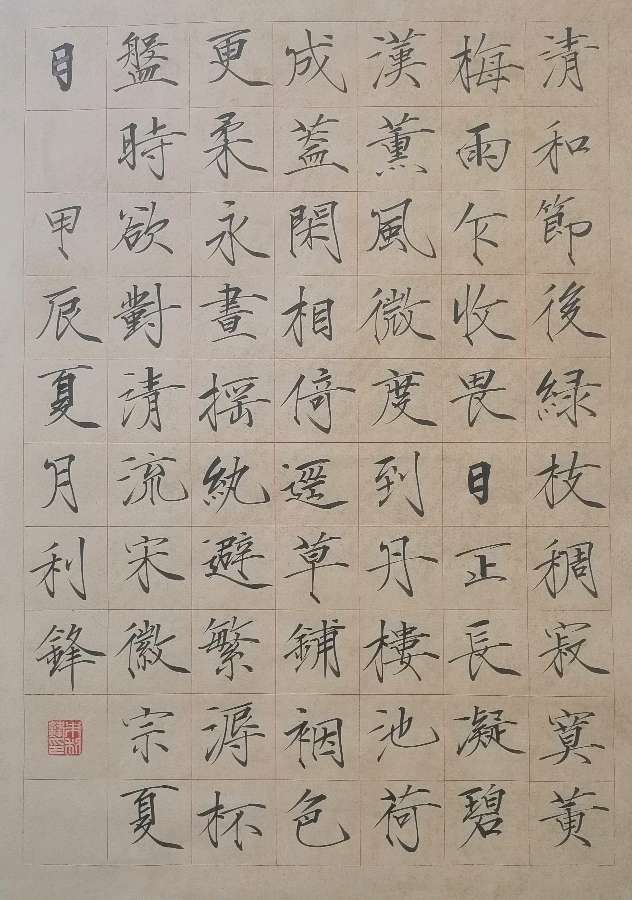 清和節後緑枝稠寂寞黄
梅雨乍收畏日正長凝碧
漢薫風微度到丹樓池荷
成蓋閑相倚逕草鋪裀色
更柔永晝揺紈避繁溽杯
盤時欲對清流宋徽宗夏
日 甲辰夏月利鋒